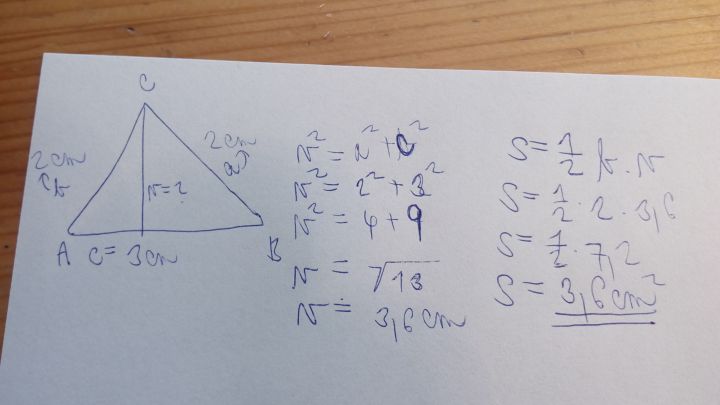 C
2cm
b
2cm
a
v=?
A c= 3cm
B
v² = 2² + c²
v² = 2² + 3²
v² = 4 + 9
v = √13
v ≐ 3,6 cm
S = 1/2 b · v
S = 1/2 · 2 · 3,6
S = 1/2 · 7,2
S = 3,6 cm²